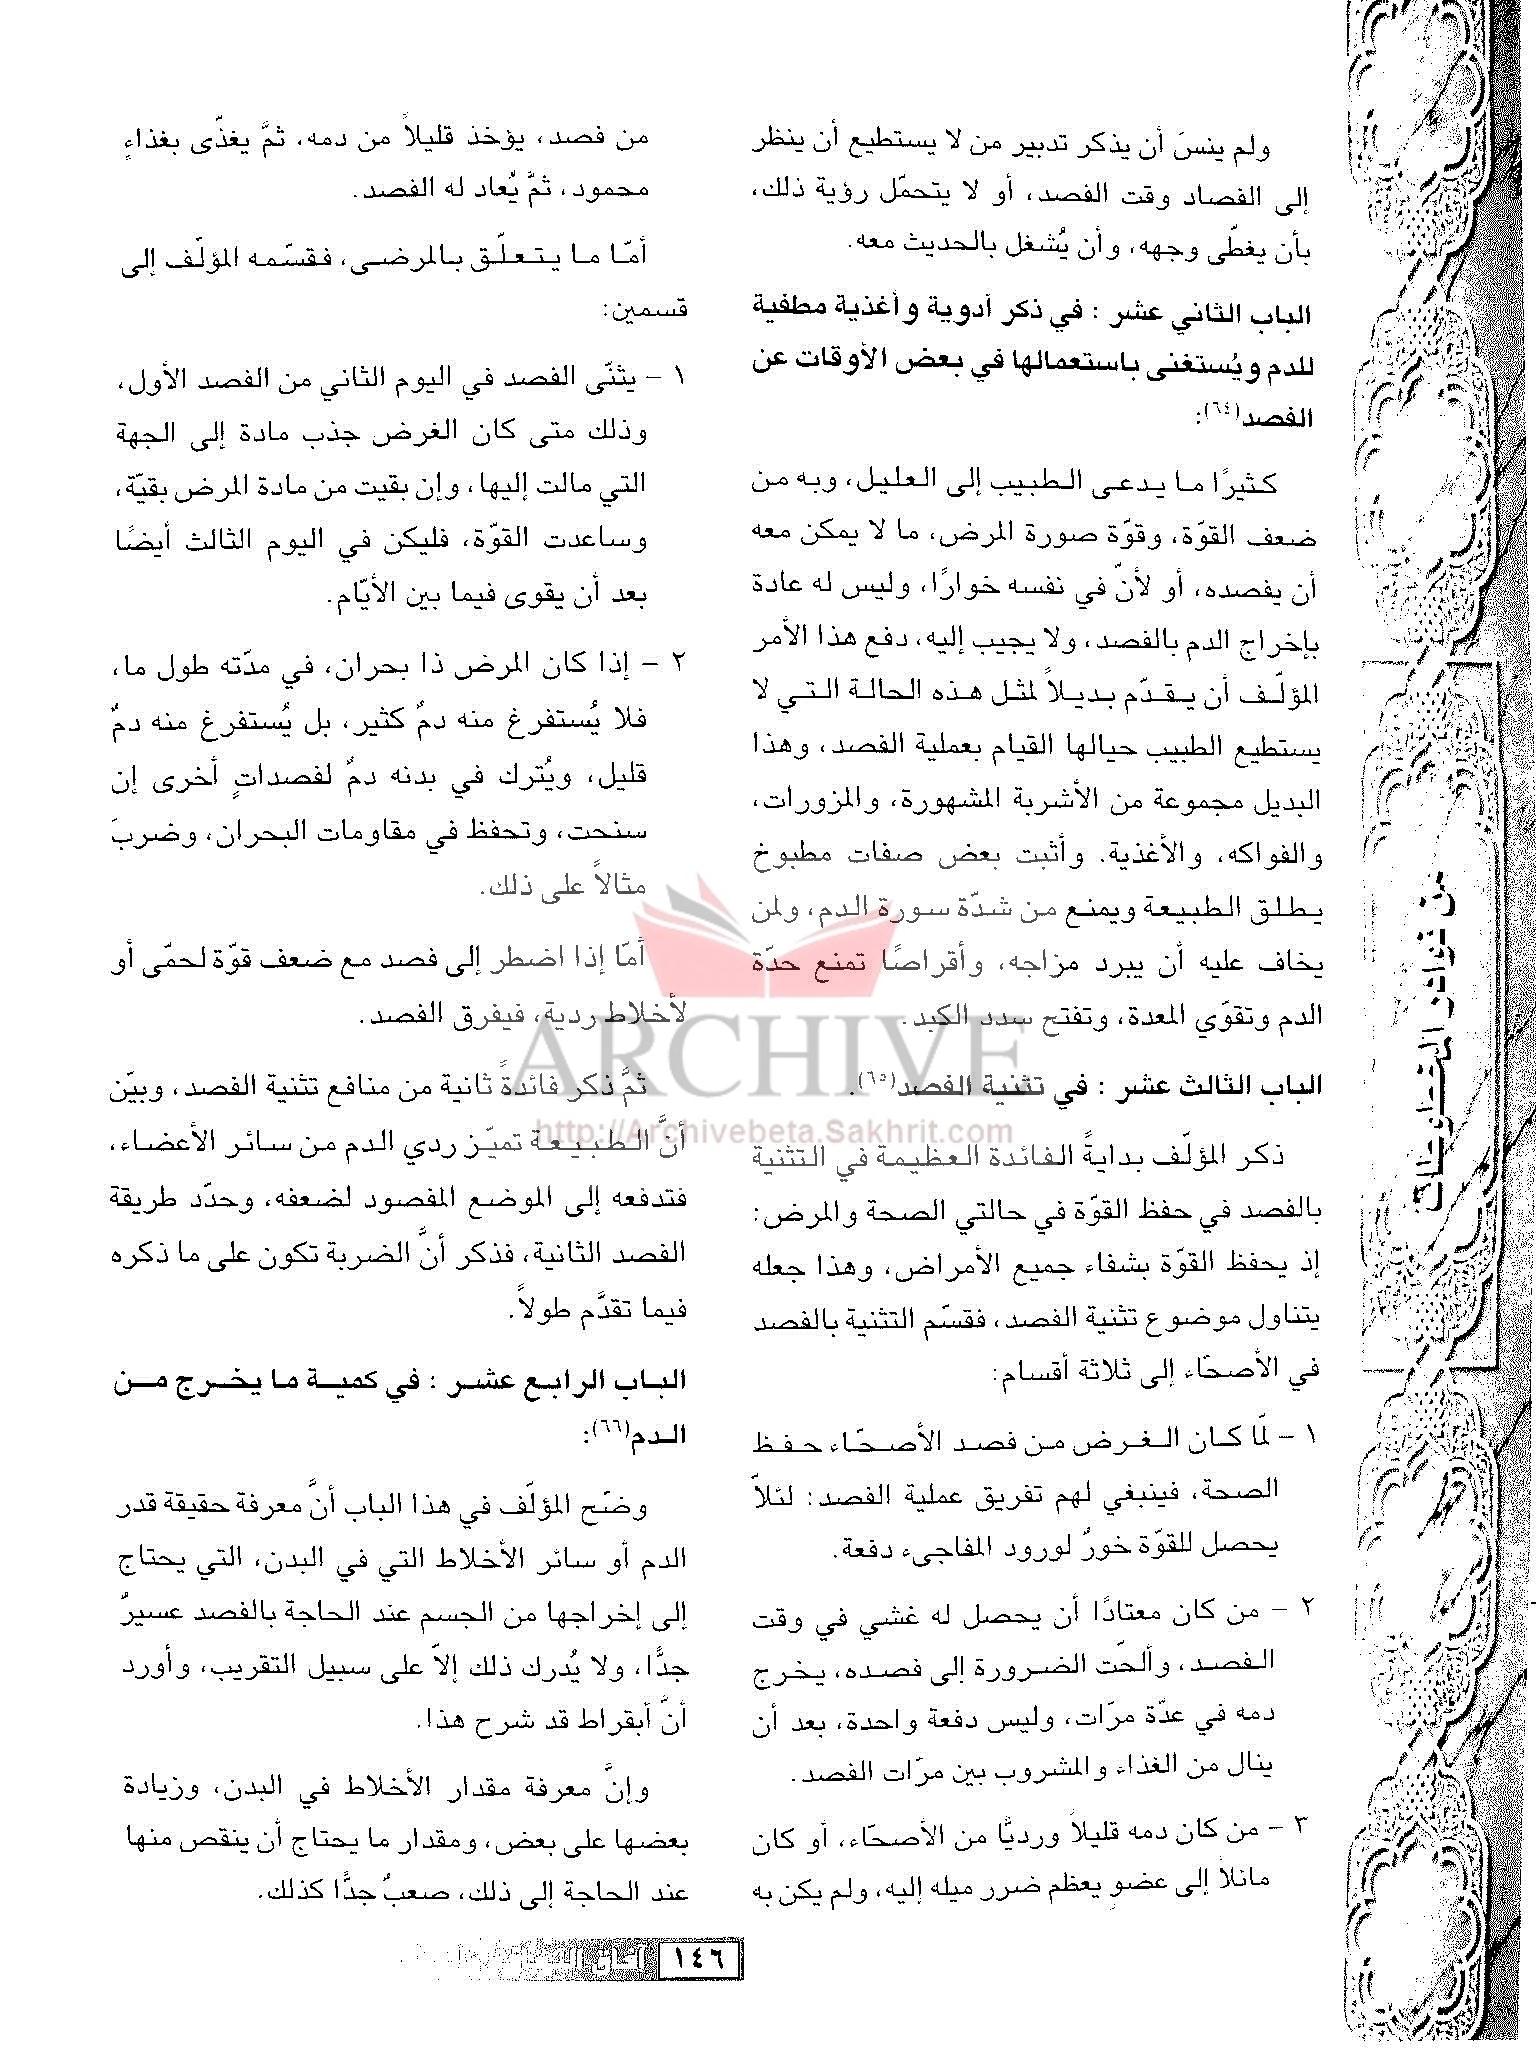 ولم ينسَ أن يذكر تدبير من لا يستطيع أن ينظر
إلى الفصاد وقت الفصد، أو لا يتحمّل رؤية ذلك،
بأن يغطّى وجهه، وأن يُشغل بالحديث معه.
الباب الثاني عشر : في ذكر أدوية وأغذية مطفية
للدم ويُستغنى باستعمالها في بعض الأوقات عن
الفصد(٦٤):
كثيرًا ما يدعى الطبيب إلى العليل، وبه من
ضعف القوّة، وقوّة صورة المرض، ما لا يمكن معه
أن يفصده، أو لأنّ في نفسه خوارًا، وليس له عادة
بإخراج الدم بالفصد، ولا يجيب إليه، دفع هذا الأمر
المؤلّف أن يقدّم بديلاً لمثل هذه الحالة التي لا
يستطيع الطبيب حيالها القيام بعملية الفصد، وهذا
البديل مجموعة من الأشربة المشهورة، والمزورات،
والفواكه، والأغذية. وأثبت بعض صفات مطبوخ
يطلق الطبيعة ويمنع من شدّة سورة الدم، ولمن
يخاف عليه أن يبرد مزاجه، وأقراصًا تمنع حدّة
الدم وتقوّي المعدة، وتفتح سدد الكبد.
الباب الثالث عشر : في تثنية الفصد(٦٥).
ذكر المؤلّف بدايةً الفائدة العظيمة في التثنية
بالفصد في حفظ القوّة في حالتي الصحة والمرض:
إذ يحفظ القوّة بشفاء جميع الأمراض، وهذا جعله
يتناول موضوع تثنية الفصد، فقسّم التثنية بالفصد
في الأصحّاء إلى ثلاثة أقسام:
١ – لمّا كان الغرض من فصد الأصحّاء حفظ
الصحة، فينبغي لهم تفريق عملية الفصد: لئلاّ
يحصل للقوّة خورٌ لورود المفاجيء دفعة.
٢ – من كان معتادًا أن يحصل له غشي في وقت
الفصد، وألحّت الضرورة إلى فصده، يخرج
دمه في عدّة مرّات، وليس دفعة واحدة، بعد أن
ينال من الغذاء والمشروب بين مرّات الفصد.
٣ – من كان دمه قليلاً ورديًّا من الأصحّاء، أو كان
مائلاً إلى عضوٍ يعظم ضرر ميله إليه، ولم يكن به
من فصد، يؤخذ قليلاً من دمه، ثمَّ يغذّى بغذاءٍ
محمود، ثمَّ يُعاد له الفصد.
أمّا ما يتعلّق بالمرضى، فقسّمه المؤلّف إلى
قسمين:
١ – يثنّى الفصد في اليوم الثاني من الفصد الأول،
وذلك متى كان الغرض جذب مادة إلى الجهة
التي مالت إليها، وإن بقيت من مادة المرض بقيّة،
وساعدت القوّة، فليكن في اليوم الثالث أيضًا
بعد أن يقوى فيما بين الأيّام.
٢ – إذا كان المرض ذا بحران، في مدّته طول ما،
فلا يُستفرغ منه دمٌ كثير، بل يُستفرغ منه دمٌ
قليل، ويُترك في بدنه دمٌ لفصداتٍ أخرى إن
سنحت، وتحفظ في مقاومات البحران، وضربَ
مثالاً على ذلك.
أمّا إذا اضطر إلى فصد مع ضعف قوّة لحمّى أو
لأخلاط ردية، فيفرق الفصد.
ثمَّ ذكر فائدةً ثانية من منافع تثنية الفصد، وبيّن
أنَّ الطبيعة تميّز ردي الدم من سائر الأعضاء،
فتدفعه إلى الموضع المفصود لضعفه، وحدّد طريقة
الفصد الثانية، فذكر أنَّ الضربة تكون على ما ذكره
فيما تقدَّم طولاً.
الباب الرابع عشر : في كمية ما يخرج من
الدم(٦٦):
وضّح المؤلّف في هذا الباب أنَّ معرفة حقيقة قدر
الدم أو سائر الأخلاط التي في البدن، التي يحتاج
إلى إخراجها من الجسم عند الحاجة بالفصد عسيرٌ
جدًّا، ولا يُدرك ذلك إلاّ على سبيل التقريب، وأورد
أنَّ أبقراط قد شرح هذا.
وإنَّ معرفة مقدار الأخلاط في البدن، وزيادة
بعضها على بعض، ومقدار ما يحتاج أن ينقص منها
عند الحاجة إلى ذلك، صعبٌ جدًّا كذلك.
من نوادر المخطوطات
ARCHIVE
http://Archivebeta.Sakhrit.com
١٤٦
آفاق الثقافة